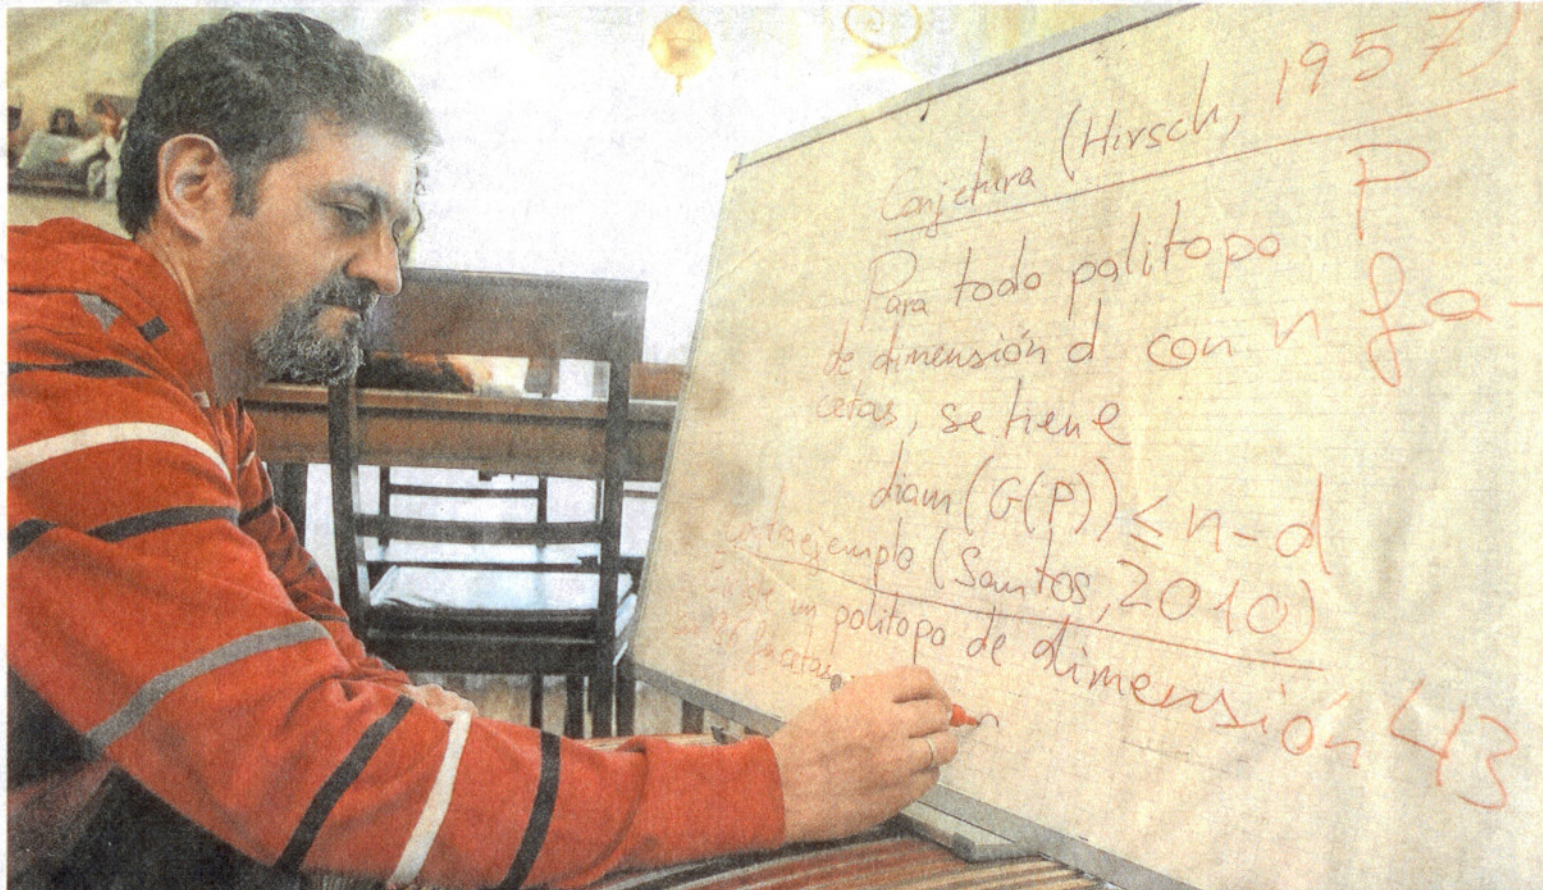 Conjetura (Hirsch, 1957)
Para todo politopo P
de dimensión d con n fa-
cetas, se tiene
diam(G(P)) ≤ n-d
Contraejemplo (Santos, 2010)
Existe un politopo de dimensión 43
facetas